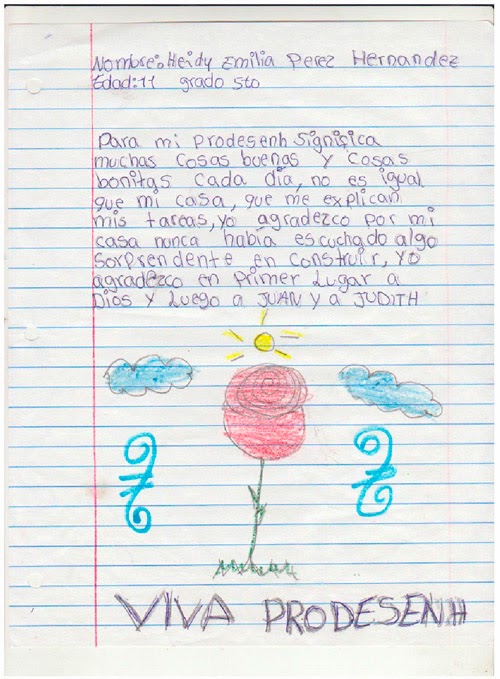 Nombre: Heidy Emilia Perez Hernandez
Edad: 11 grado 5to
Para mi Prodesenh Significa
muchas cosas buenas y cosas
bonitas cada día, no es igual
que mi casa, que me explican
mis tareas, yo agradezco por mi
casa nunca había escuchado algo
sorprendente en construir, yo
agradezco en primer lugar a
Dios y Luego a JUAN y a JUDITH
VIVA PRODESENH